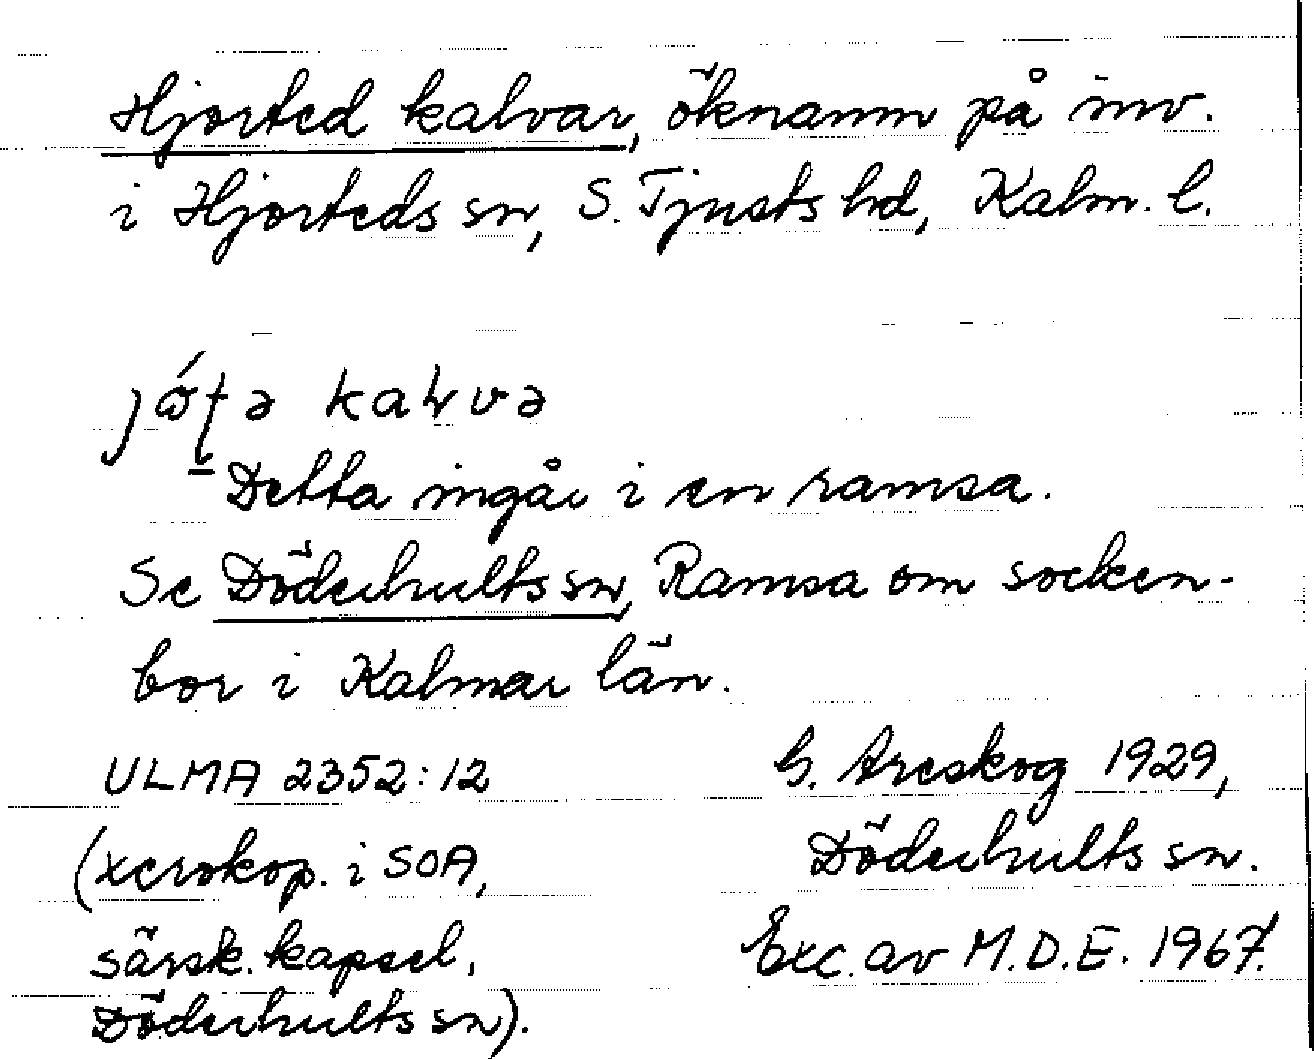 Hjorted kalvar, öknamn på inv.
i Hjorteds sn, S. Tjusts hd, Kalm. l.
kalvə
Detta ingår i en ramsa.
Se Döderhults sn, Ramsa om socken-
bor i Kalmar län.
ULMA 2352:12
(xerokop. i SOA,
särsk. kapsel,
Döderhults sn).
G. Areskog 1929,
Döderhults sn.
Exc. av M.D.E. 1967.